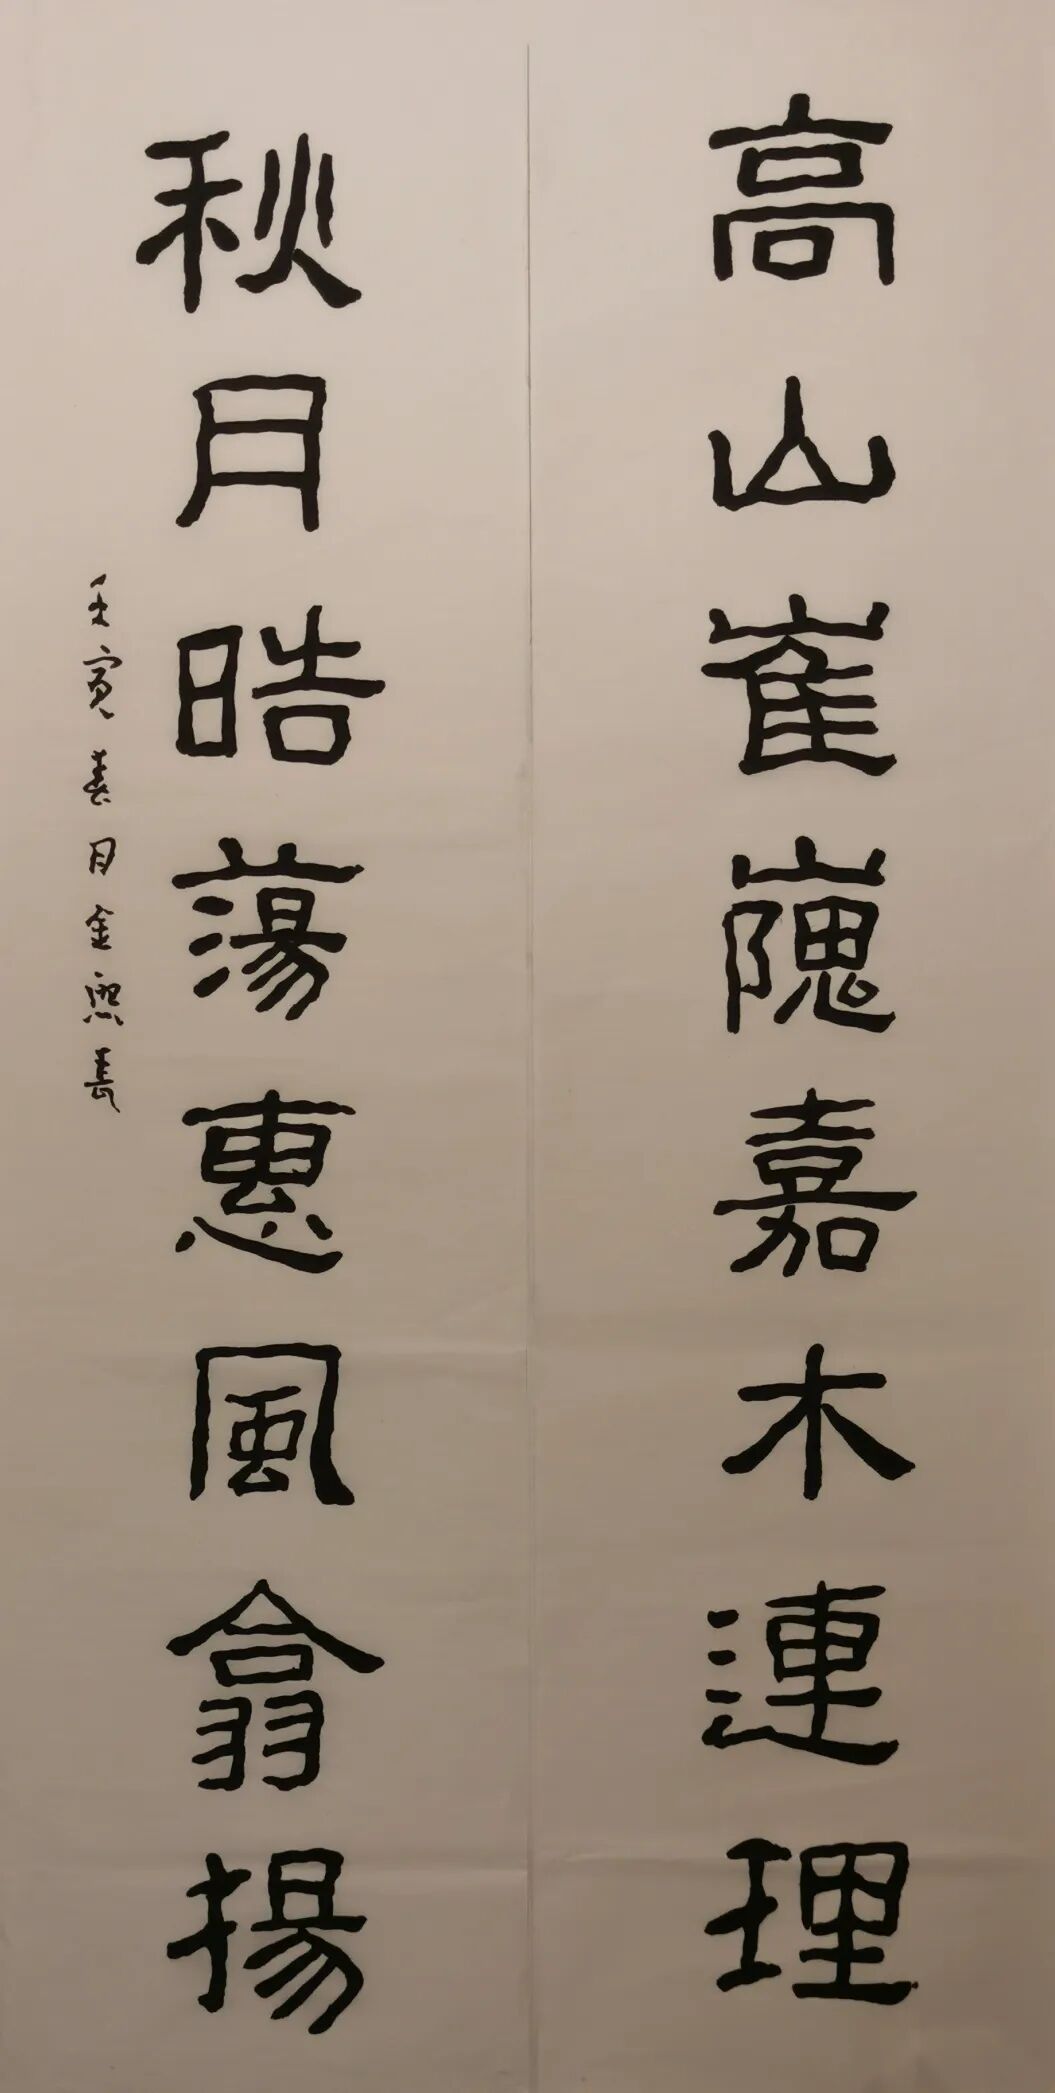 高山崔嵬嘉木連理
秋月晧蕩惠風翕揚
壬寅春月金熙長